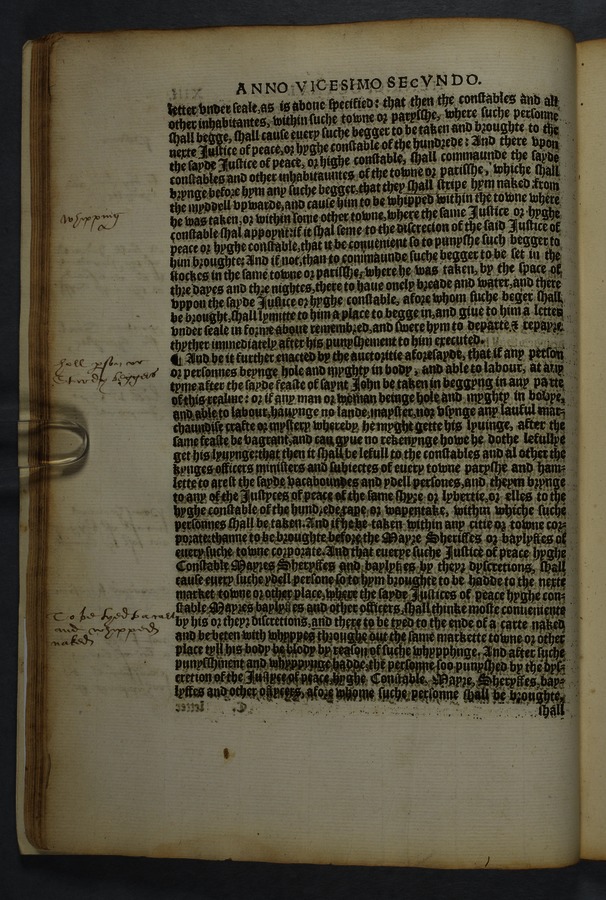 ANNO VICESIMO SECVNDO.
letter vnder seale, as is aboue specified: that then the constables and all
other inhabitantes, within suche towne or parysshe, where suche personne
shall begge, shall cause euery suche begger to be taken and broughte to the
nexte Justice of peace, or hyghe constable of the hundrede: And there vpon
the sayde Justice of peace, or highe constable, shall commaunde the sayde
constables and other inhabitauntes of the towne or parisshe, whiche shall
brynge before hym any suche begger, that they shall stripe hym naked from
the myddell vpwarde, and cause him to be whipped within the towne where
he was taken, or within some other towne, where the same Justice or hyghe
constable shal appoynt: if it shal seme to the discrecion of the said Justice of
peace or hyghe constable, that it be conuenient so to punyshe such begger to
him broughte: And if not, than to commaunde suche begger to be set in the
stockes in the same towne or parisshe, where he was taken, by the space of
thre dayes and thre nightes, there to haue onely breade and water, and there
vppon the sayde Justice or hyghe constable, afore whom suche beger shall
be brought, shall lymitte to him a place to begge in, and giue to him a letter
vnder seale in forme aboue remembred, and swere hym to departe, & repayre
thyther immediately after his punyshement to him executed.
¶ And be it further enacted by the auctoritie aforesayde, that if any person
or personnes beynge hole and myghty in body, and able to labour, at any
tyme after the sayde feaste of saynt John be taken in beggyng in any parte
of this realme: or if any man or woman beinge hole and myghty in bodye,
and able to labour, hauynge no lande, mayster, nor vsynge any lauful mar-
chaundise crafte or mystery whereby he myght gette his lyuinge, after the
same feaste be vagrant, and can gyue no rekenynge howe he dothe lefullye
get his lyuynge: that then it shall be lefull to the constables and al other the
kynges officers ministers and subiectes of euery towne parysshe and ham-
lette to arest the sayde vacaboundes and ydell persones, and theym brynge
to any of the Justyces of peace of the same shyre or lybertie, or elles to the
hyghe constable of the hundrede, rape, or wapentake, within whiche suche
personnes shall be taken. And if he be taken within any citie or towne cor-
porate: thanne to be broughte before the Mayre Sheriffes or baylyffes of
euery suche towne corporate. And that euerye suche Justice of peace hyghe
Constable Mayres Sheryffes and baylyffes by theyr dyscretions, shall
cause euery suche ydell persone so to hym broughte to be hadde to the nexte
market towne or other place, where the sayde Justices of peace hyghe con-
stable Mayres baylyffes and other officers, shall thinke moste conueniente
by his or theyr discretions, and there to be tyed to the ende of a carte naked
and be beten with whyppes throughe out the same markette towne or other
place tyll his body be blody by reason of suche whyppinge. And after suche
punysshment and whyppynge hadde, the personne soo punyshed by the dys-
cretion of the Justyce of peace, hyghe Constable, Mayre, Sheryffes, bay-
lyffes and other officers, afore whome suche personne shall be broughte,
shall
whipping
beggers
To be tyed
and whipped
naked